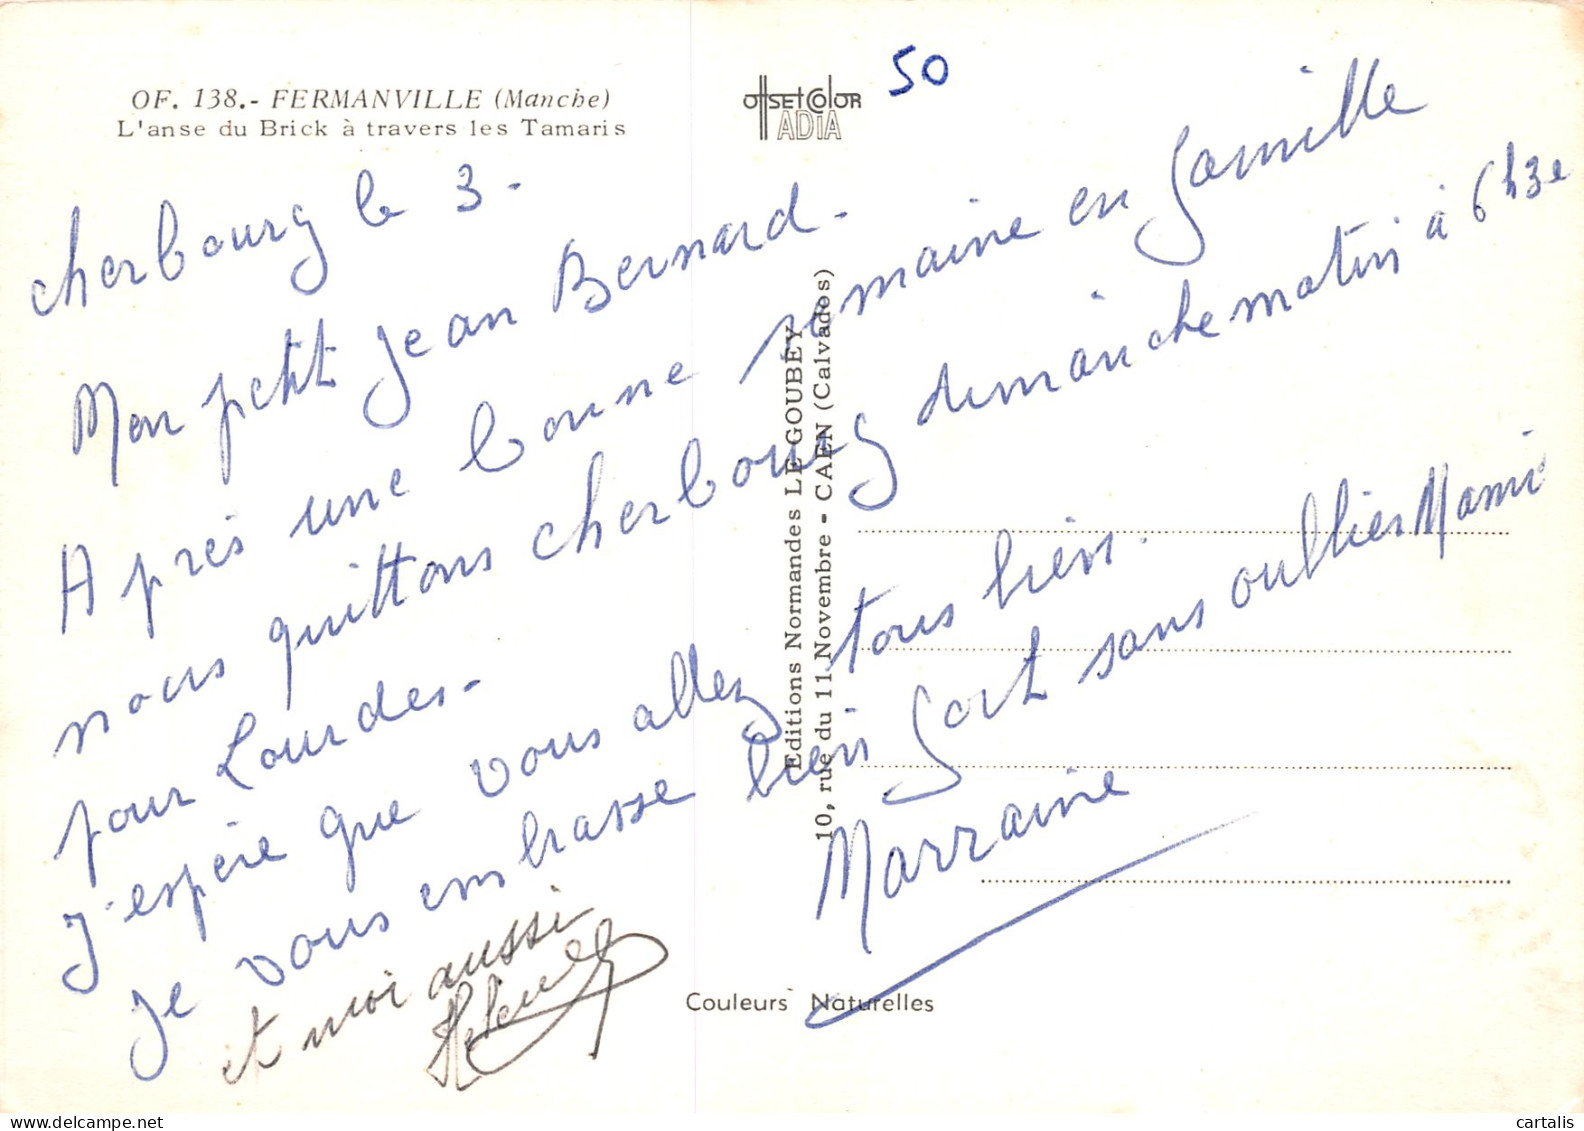 OF. 138.- FERMANVILLE (Manche)
L'anse du Brick à travers les Tamaris
OffSET COLOR
ADIA
50
Cherbourg le 3.
Mon petit Jean Bernard.
Après une bonne semaine en famille
nous quittons cherbourg dimanche matin à 6h30
pour Lourdes.
J'espère que vous allez tous bien.
Je vous embrasse bien fort sans oublier Mami
Marraine
et moi aussi
Editions Normandes LE GOUBEY
10, rue du 11 Novembre - CAEN (Calvados)
Couleurs Naturelles
cartalis